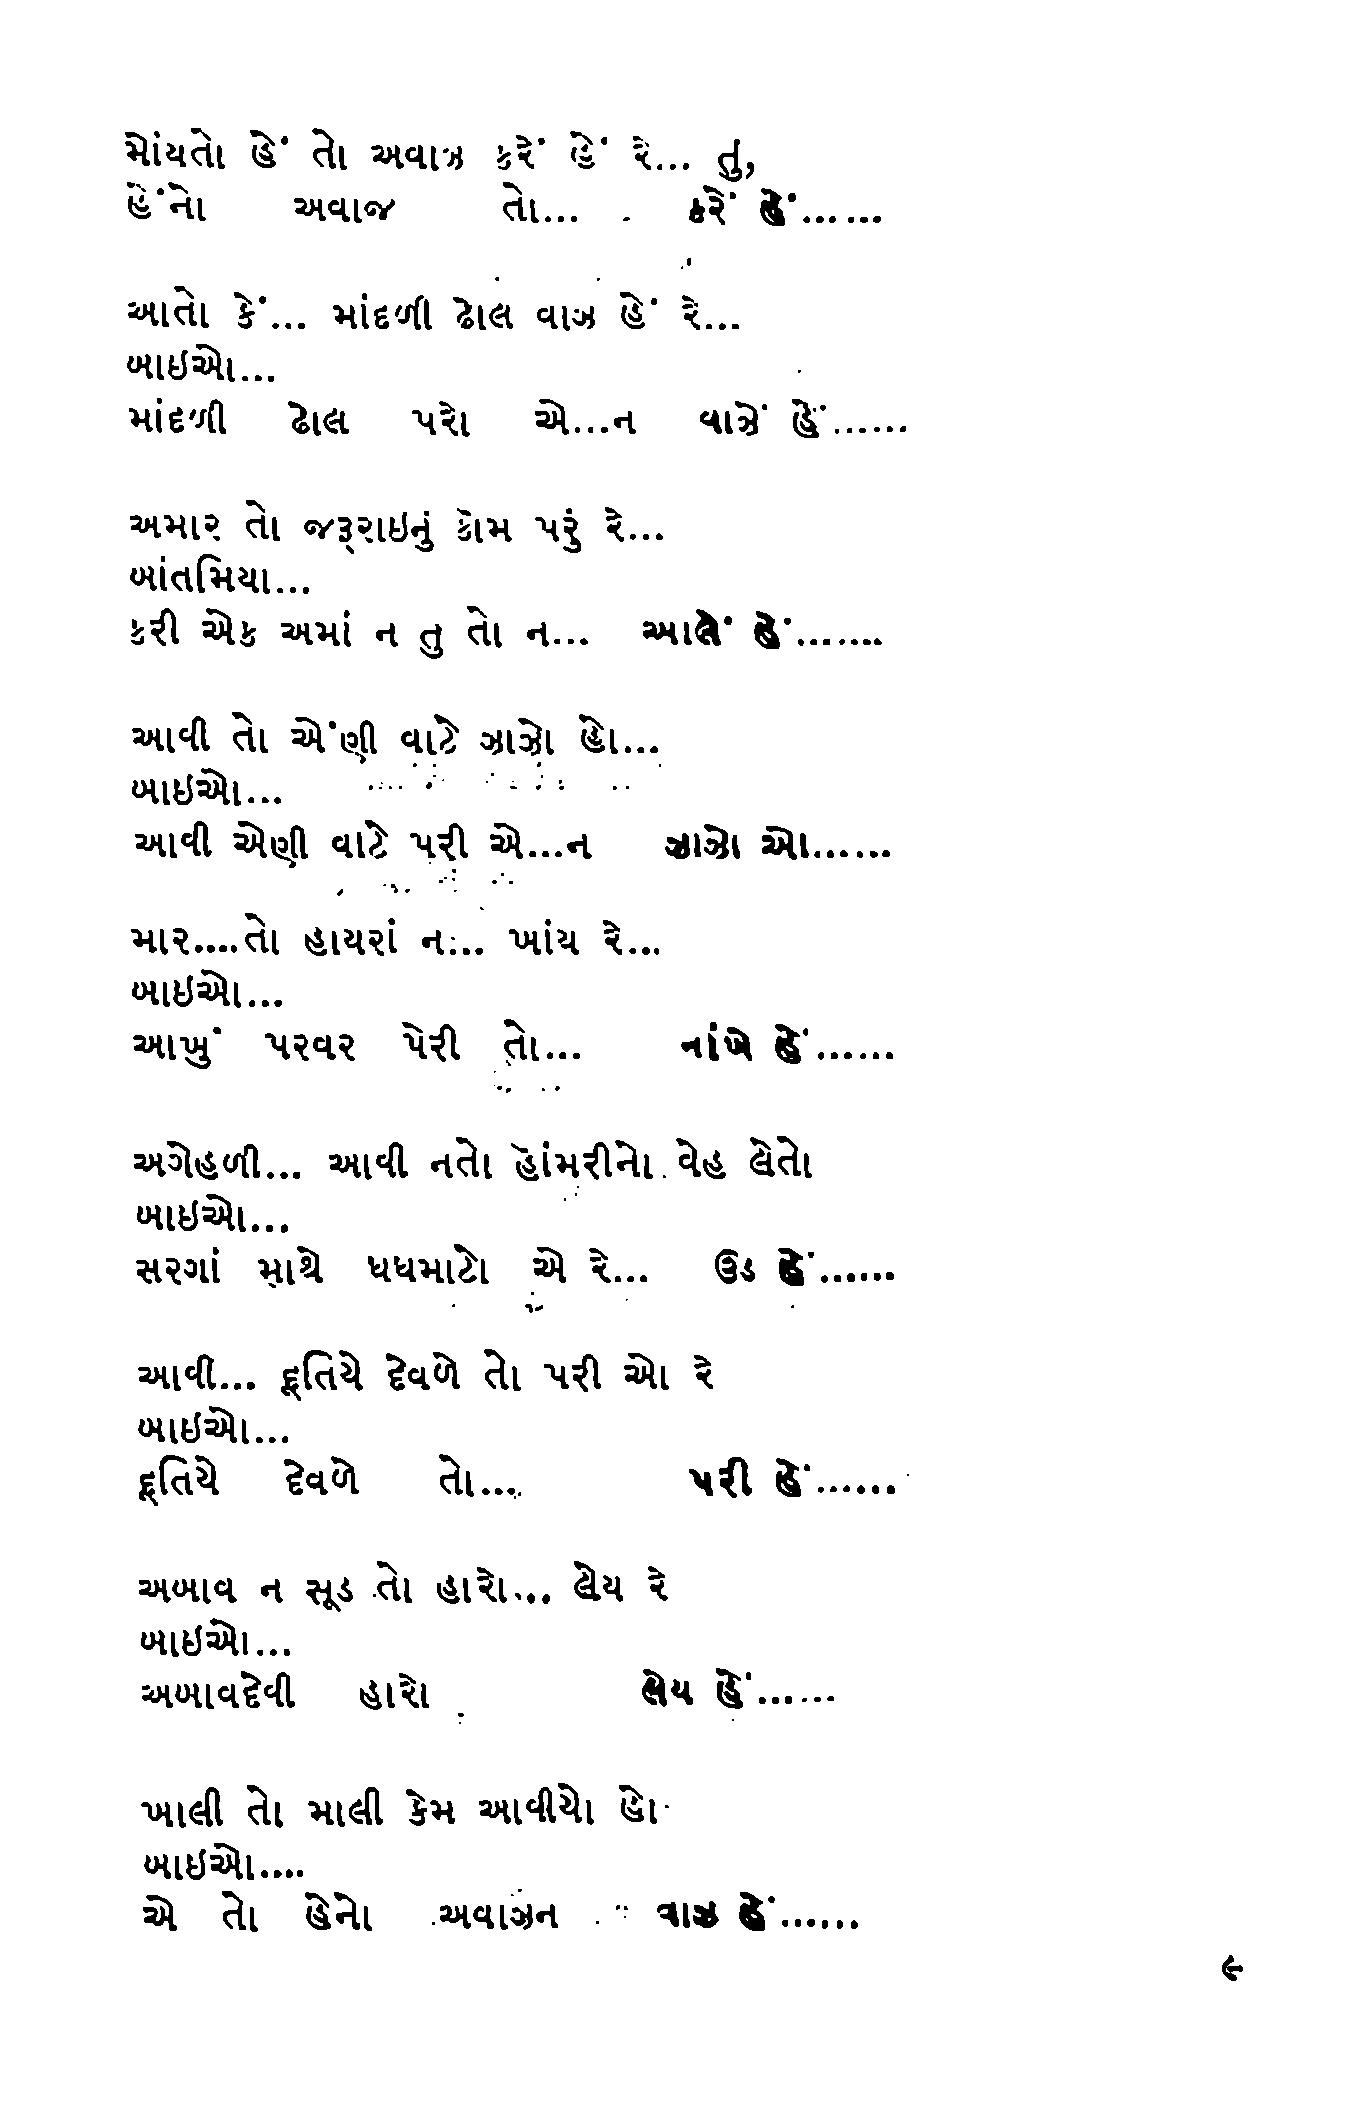 મોંયતો હેં તો અવાઝ કરેં હેં રે... તું,
હેંનો અવાજ તો... કરેં હેં......
આતો કેં... માંદળી ઢોલ વાઝ હેં રે...
બાઇઓ...
માંદળી ઢોલ પરો એ...ન વાઝેં હેં......
અમાર તો જરૂરાઇનું કૉમ પરું રે...
બાંતમિયા...
કરી એક અમાં ન તુ તો ન... આલેં હેં.......
આવી તો એંણી વાટે ઝાઝો હો...
બાઇઓ...
આવી એણી વાટે પરી એ...ન ઝાઝો ઓ......
માર....તો હાયરાં ન... ખાંય રે...
બાઇઓ...
આખું પરવર પેરી તો... નાંખે હેં......
અગેહળી... આવી નતો હૉંમરીનો વેહ લેતો
બાઇઓ...
સરગાં માથે ધધમાટો એ રે... ઉડ હેં......
આવી... દૂતિયે દેવળે તો પરી ઓ રે
બાઇઓ...
દૂતિયે દેવળે તો... પરી હેં......
અબાવ ન સૂડ તો હારો... લેય રે
બાઇઓ...
અબાવદેવી હારો લેય હેં......
ખાલી તો માલી કેમ આવીયો હો
બાઇઓ....
એ તો હેનો અવાઝન વાઝ હેં......
૯